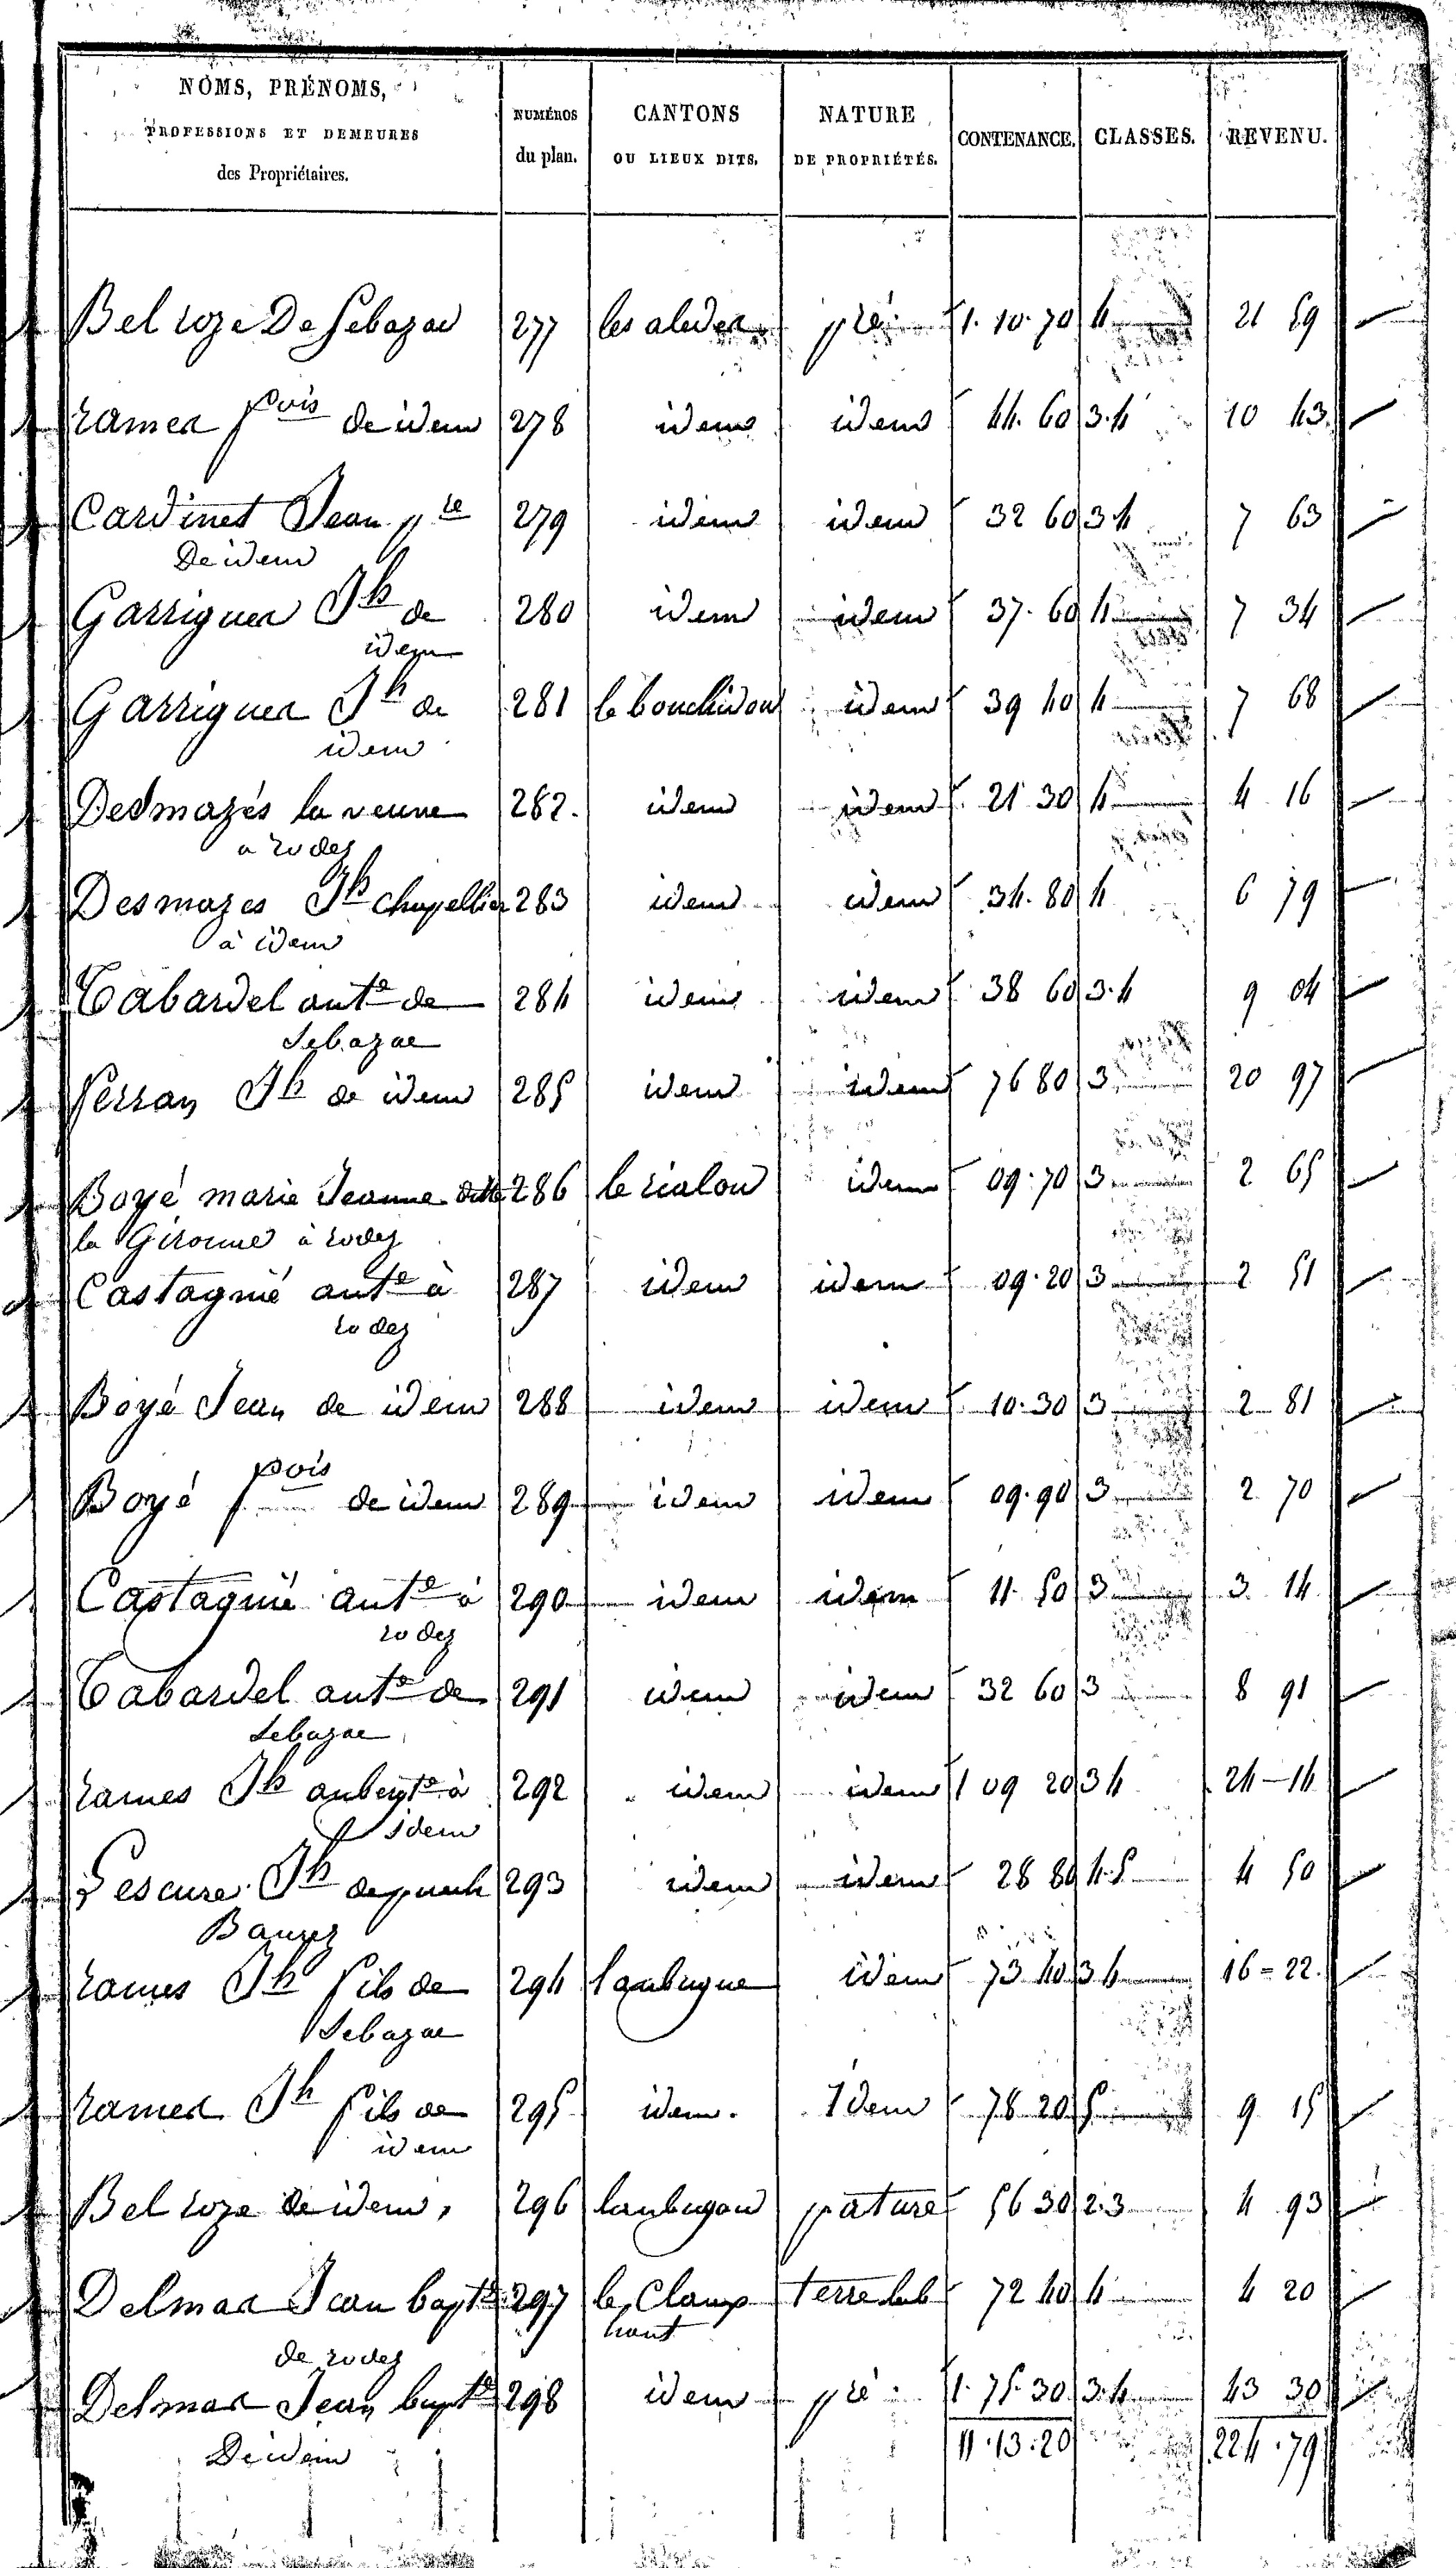 NOMS, PRÉNOMS, PROFESSIONS ET DEMEURES des Propriétaires. NUMÉROS du plan. CANTONS OU LIEUX DITS. NATURE DE PROPRIÉTÉS. CONTENANCE. CLASSES. REVENU.
Bel roze De Sebazac 277 les aleder pré 1. 10. 70 4 21 59
rames fcois de idem 278 idem idem 44. 60 3.4 10 43
Cardinet Jean pre 279 idem idem 32 60 3 4 7 63
De idem
Garrigues Jh de 280 idem idem 37. 60 4 7 34
idem
Garrigues Jh de 281 le bouchidou idem 39 40 4 7 68
idem
Desmazés la veuve 282. idem idem 21 30 4 4 16
a rodez
Desmazes Jh chapellier 283 idem idem 34. 80 4 6 79
à idem
Cabardel ante de 284 idem idem 38 60 3.4 9 04
Sebazac
Jh de idem 285 idem idem 76 80 3 20 97
Boyé marie Jeanne dite 286 le rialou idem 09. 70 3 2 65
la Gironne à rodez
Castagnié ante à 287 idem idem 09. 20 3 2 51
rodez
Boyé Jean de idem 288 idem idem 10. 30 3 2 81
Boyé fcois de idem 289 idem idem 09. 90 3 2 70
Castagnié ante à 290 idem idem 11 50 3 3 14
rodez
Cabardel ante de 291 idem idem 32 60 3 8 91
Sebazac
rames Jh à 292 idem idem 1 09 20 3 4 24-14
idem
Lescure Jh de puech 293 idem idem 28 80 4.5 4 50
rames Jh fils de 294 laubugue idem 73 40 3 4 16=22.
Sebazac
rames Jh fils de 295 idem. Idem 78 20 5 9 15
idem
Bel roze de idem, 296 laubugou pature 56 30 2.3 4 93
Delmas Jean bapte 297 le Claux terre lab 72 40 4 4 20
haut
de rodez
Delmas Jean bapte 298 idem pré 1. 75. 30 3.4 43 30
De idem
11.13.20 224.79